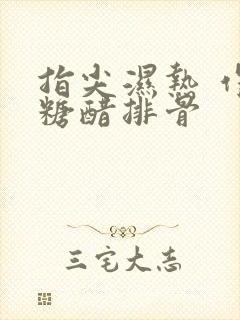 指尖濕熱
糖醋排骨
三宅大志